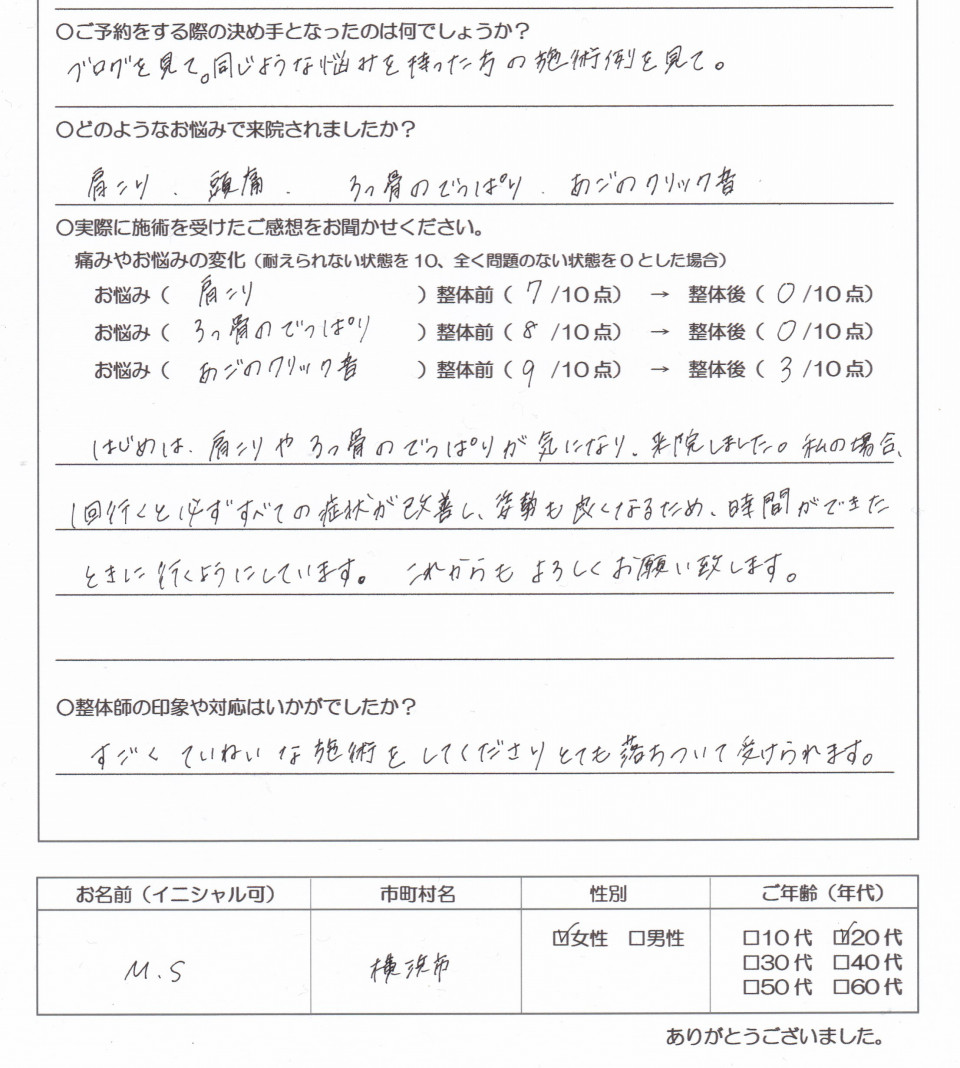 ○ご予約をする際の決め手となったのは何でしょうか？
ブログを見て。同じような悩みを持った方の施術例を見て。
○どのようなお悩みで来院されましたか？
肩こり．頭痛．ろっ骨のでっぱり．あごのクリック音
○実際に施術を受けたご感想をお聞かせください。
痛みやお悩みの変化（耐えられない状態を10、全く問題のない状態を0とした場合）
お悩み（ 肩こり ）整体前（ 7 /10点） → 整体後（ 0 /10点）
お悩み（ ろっ骨のでっぱり ）整体前（ 8 /10点） → 整体後（ 0 /10点）
お悩み（ あごのクリック音 ）整体前（ 9 /10点） → 整体後（ 3 /10点）
はじめは、肩こりやろっ骨のでっぱりが気になり、来院しました。私の場合、
1回行くと必ずすべての症状が改善し、姿勢も良くなるため、時間ができた
ときに行くようにしています。 これからもよろしくお願い致します。
○整体師の印象や対応はいかがでしたか？
すごくていねいな施術をしてくださりとても落ちついて受けられます。
お名前（イニシャル可） 市町村名 性別 ご年齢（年代）
M.S 横浜市 ☑女性 □男性 □10代 ☑20代
□30代 □40代
□50代 □60代
ありがとうございました。